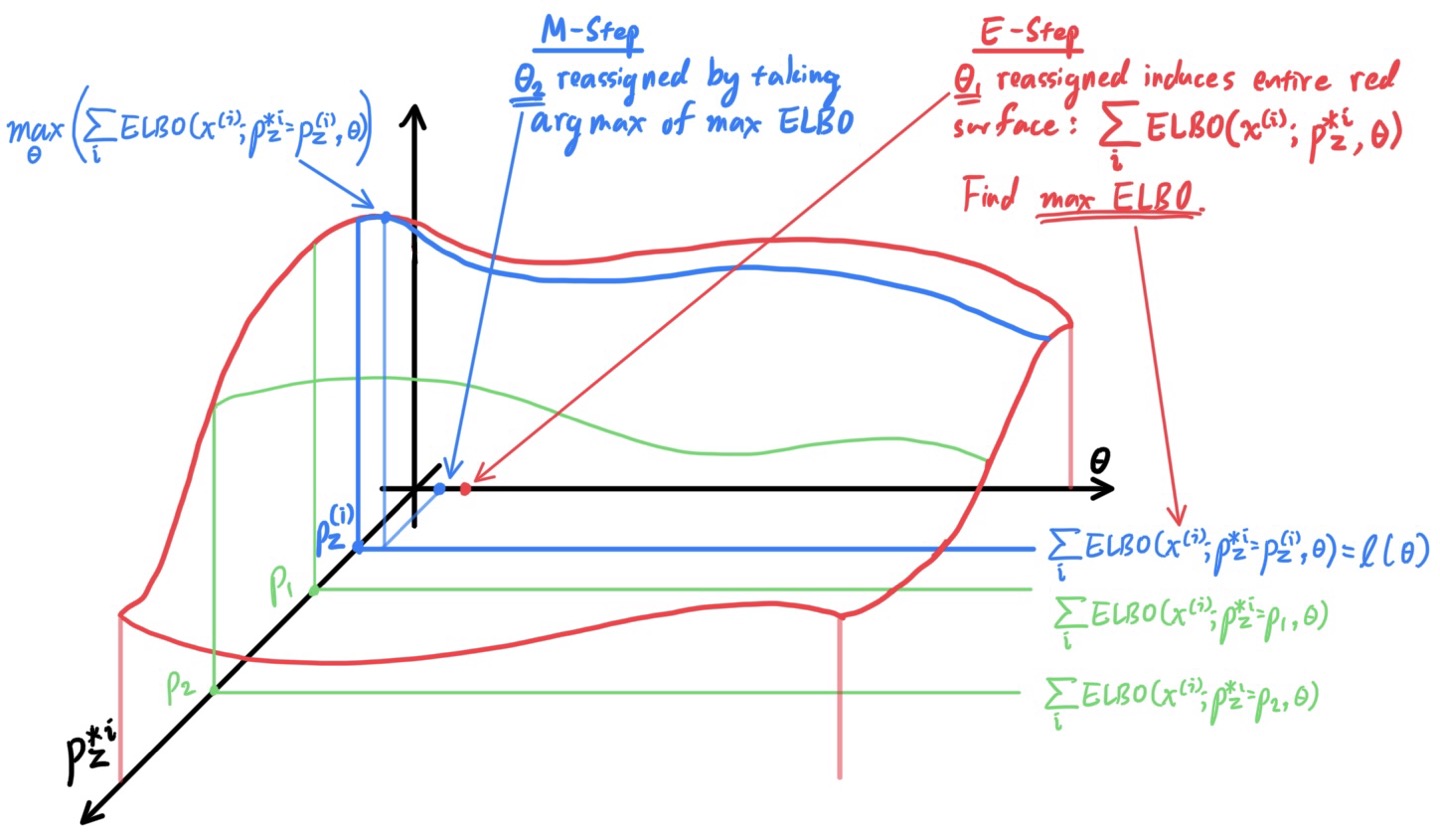 M-Step
θ₂ reassigned by taking
argmax of max ELBO
E-Step
θ₁ reassigned induces entire red
surface: ∑ᵢ ELBO(x⁽ⁱ⁾; p_z^{*i}, θ)
Find max ELBO.
max_θ (∑ᵢ ELBO(x⁽ⁱ⁾; p_z^{*i}=p_z^{(i)}, θ))
θ
p_z^{(i)}
∑ᵢ ELBO(x⁽ⁱ⁾; p_z^{*i}=p_z^{(i)}, θ) = ℓ(θ)
p₁
∑ᵢ ELBO(x⁽ⁱ⁾; p_z^{*i}=p₁, θ)
p₂
∑ᵢ ELBO(x⁽ⁱ⁾; p_z^{*i}=p₂, θ)
p_z^{*i}